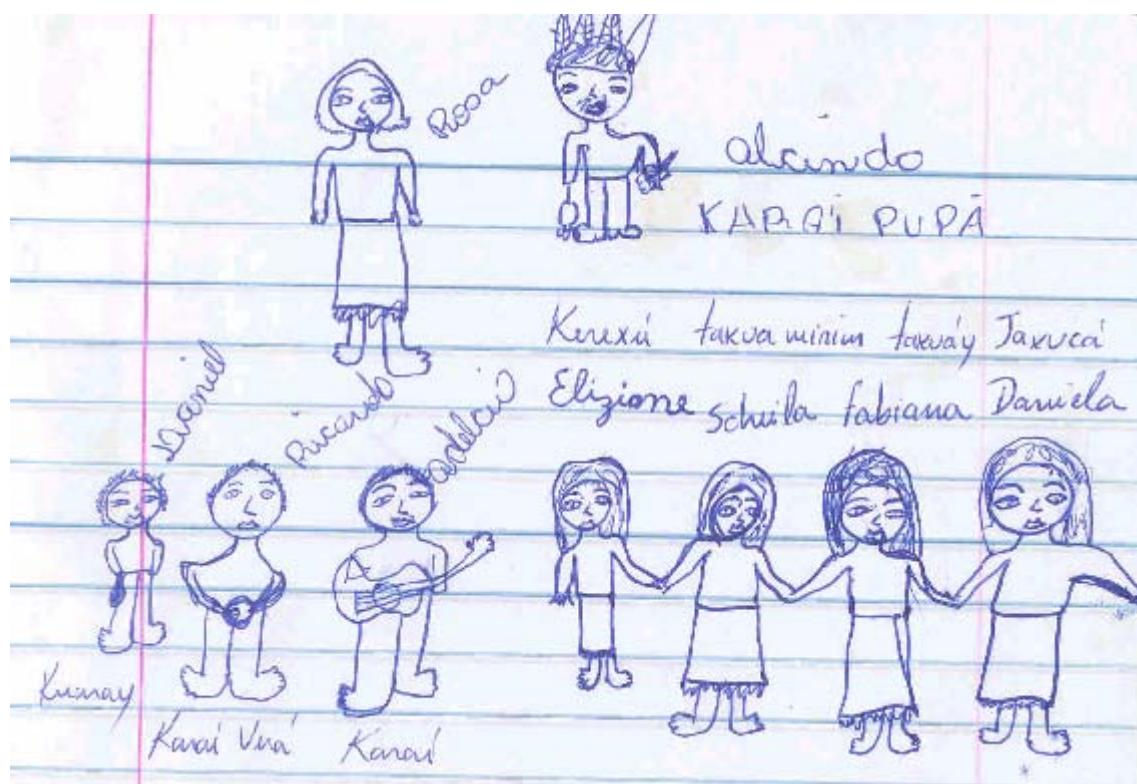 Rosa
alcindo
KARAI PUPÃ
Kerexú takua minim takuáy Jaxucá
Elizione Scheila fabiana Daniela
Ricardo
adelcio
Karaí Virá Karaí